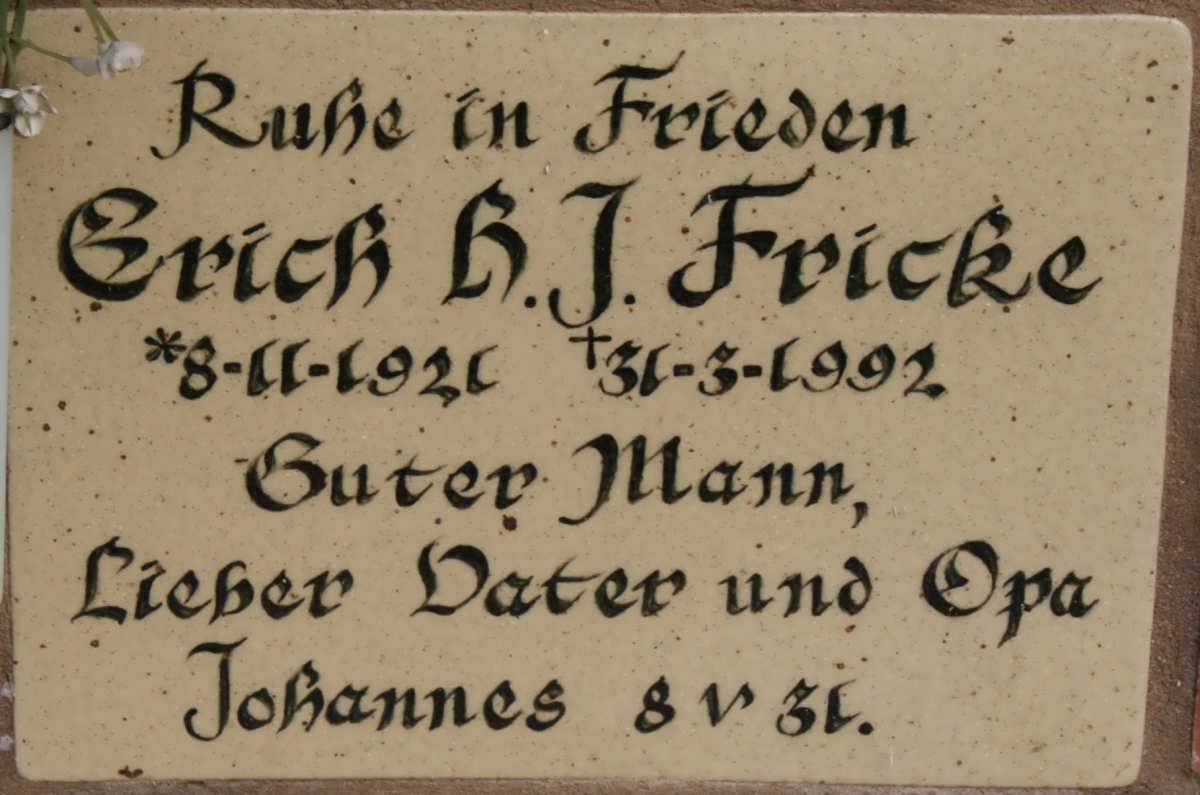 Ruhe in Frieden
Erich H. J. Fricke
*8-11-1921 †31-3-1992
Guter Mann,
Lieber Vater und Opa
Johannes 8 v 31.